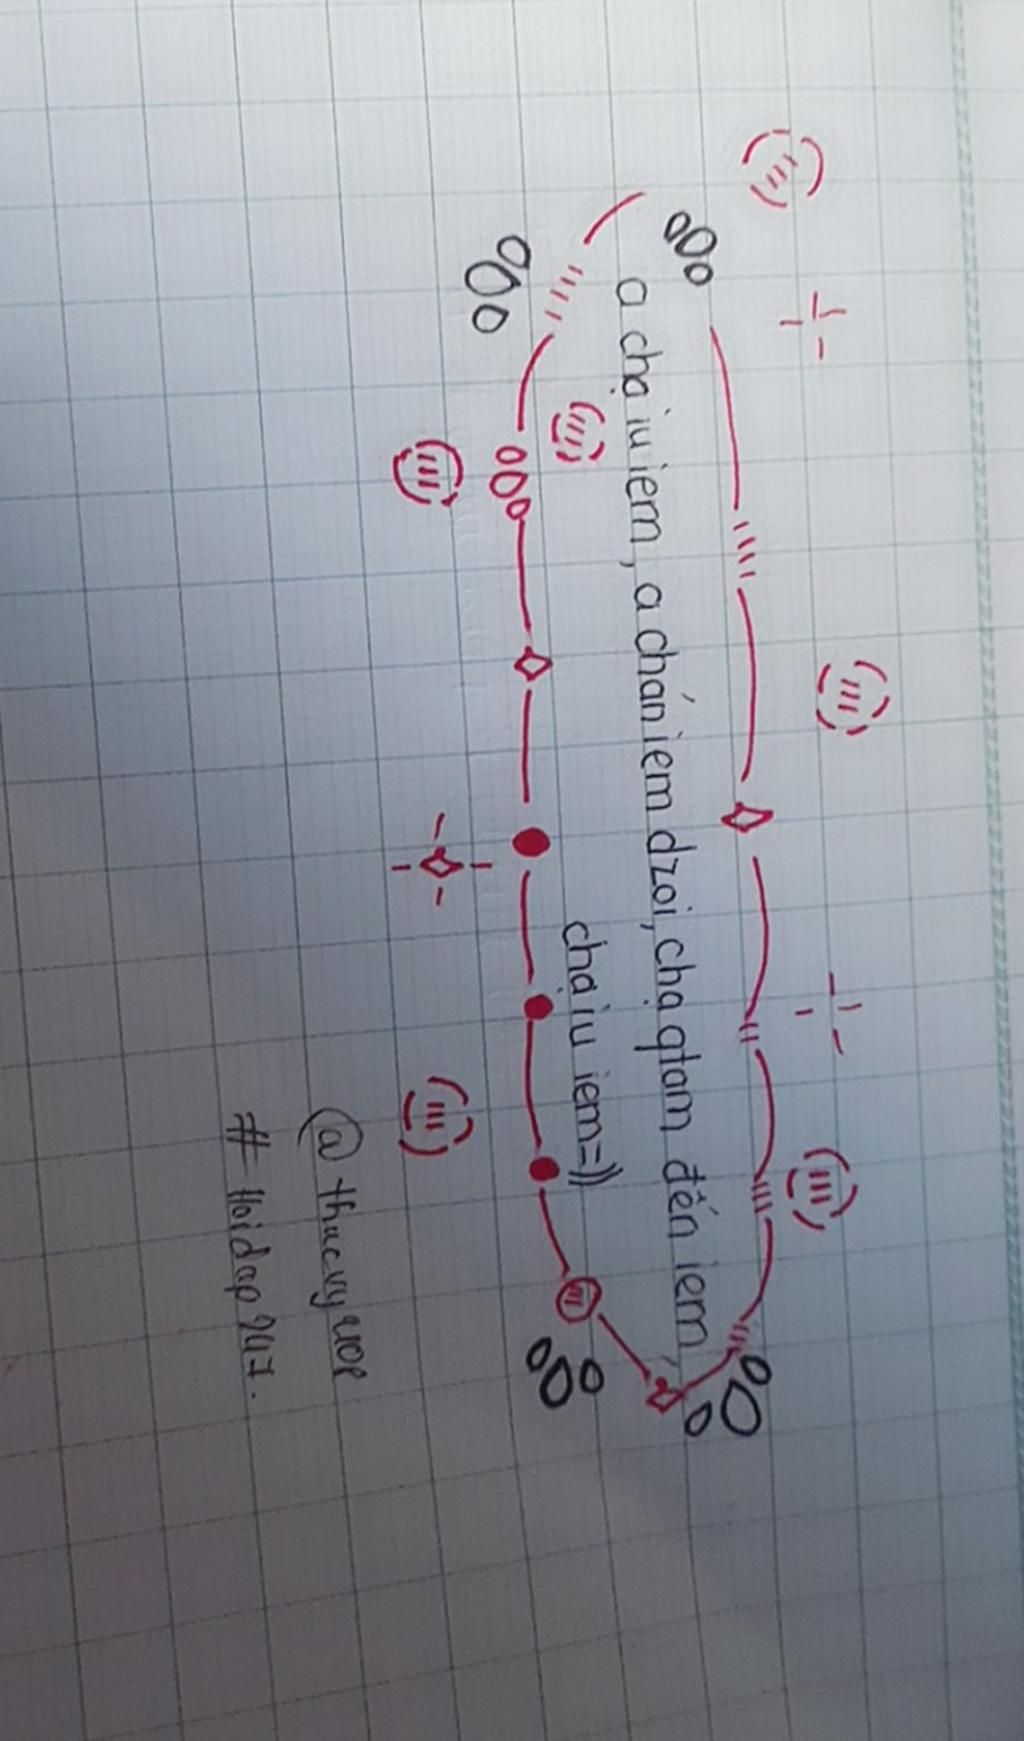 a chạ iu iem, a chán iem dzoi, chạ qtam đến iem
chạ iu iem=))
@thucvyuop
#Hoidap247.